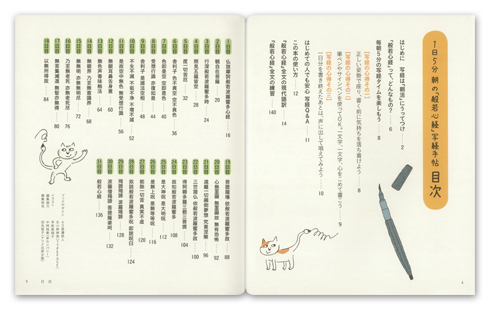 1日5分 朝の「般若心経」写経手帖 目次
はじめに 写経は、「朝活」にうってつけ 2
『般若心経』って、どんなもの? 6
毎朝5分の写経タイムを楽しもう 8
【写経の心得その一】
正しい姿勢で座り、書く前に気持ちを落ち着けよう 8
【写経の心得その二】
筆ペンやサインペンを使ってOK。一文字、一文字、心をこめて書こう 9
【写経の心得その三】
「自分を書き終えた」あとは、声に出して唱えてみよう 10
はじめての人でも安心 写経Q&A 11
この本の使い方 12
『般若心経』全文の現代語訳 14
『般若心経』全文の練習 140
4
1日目 仏説摩訶般若波羅蜜多心経 16
2日目 観自在菩薩 20
3日目 行深般若波羅蜜多時 24
4日目 照見五蘊皆空 28
5日目 度一切苦厄 32
6日目 舎利子 色不異空 空不異色 36
7日目 色即是空 空即是色 40
8日目 受想行識 亦復如是 44
9日目 舎利子 是諸法空相 48
10日目 不生不滅 不垢不浄 不増不減 52
11日目 是故空中無色 無受想行識 56
12日目 無眼耳鼻舌身意 60
13日目 無色声香味触法 64
14日目 無眼界 乃至無意識界 68
15日目 無無明 亦無無明尽 72
16日目 乃至無老死 亦無老死尽 76
17日目 無苦集滅道 無智亦無得 80
18日目 以無所得故 84
19日目 菩提薩埵 依般若波羅蜜多故 88
20日目 心無罣礙 無罣礙故 無有恐怖 92
21日目 遠離一切顛倒夢想 究竟涅槃 96
22日目 三世諸仏 依般若波羅蜜多故 100
23日目 得阿耨多羅三藐三菩提 104
24日目 故知般若波羅蜜多 108
25日目 是大神呪 是大明呪 112
26日目 是無上呪 是無等等呪 116
27日目 能除一切苦 真実不虚 120
28日目 故説般若波羅蜜多呪 即説呪曰 124
29日目 羯諦羯諦 波羅羯諦 128
30日目 波羅僧羯諦 菩提薩婆訶 132
31日目 般若心経 136
5 目次